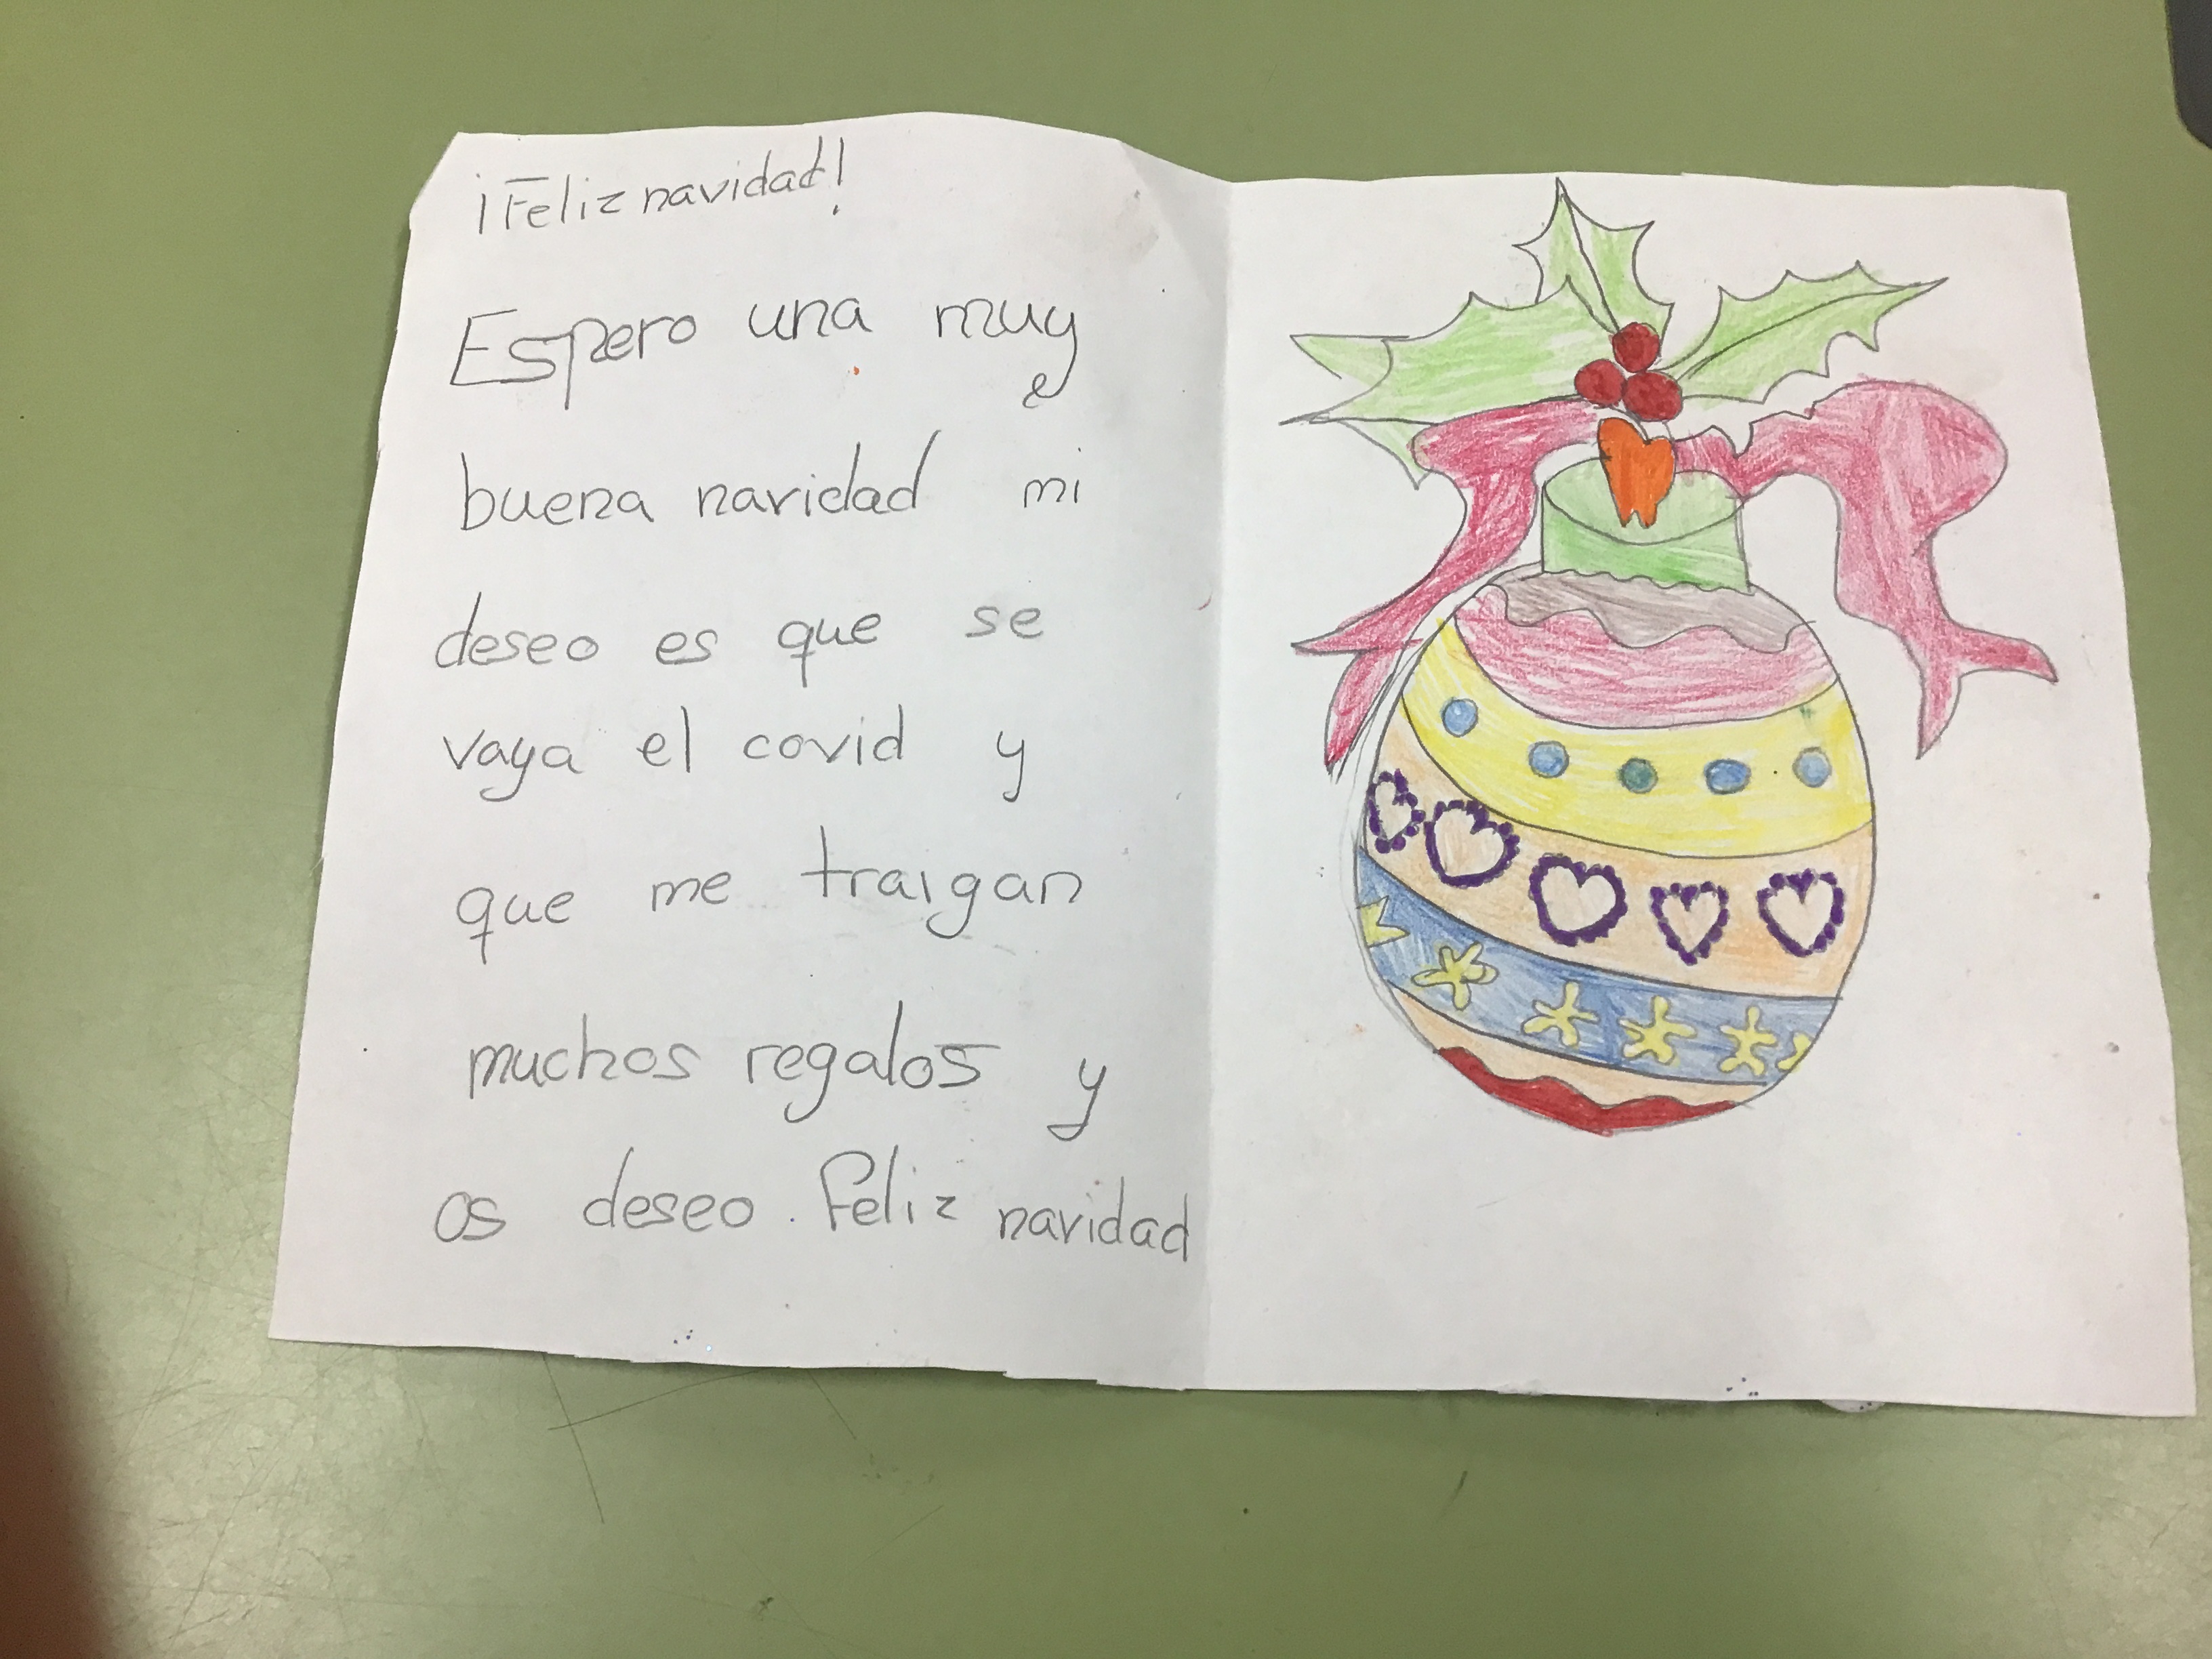 ¡Feliz navidad!
Espero una muy
buena navidad mi
deseo es que se
vaya el covid y
que me traigan
muchos regalos y
os deseo. Feliz navidad